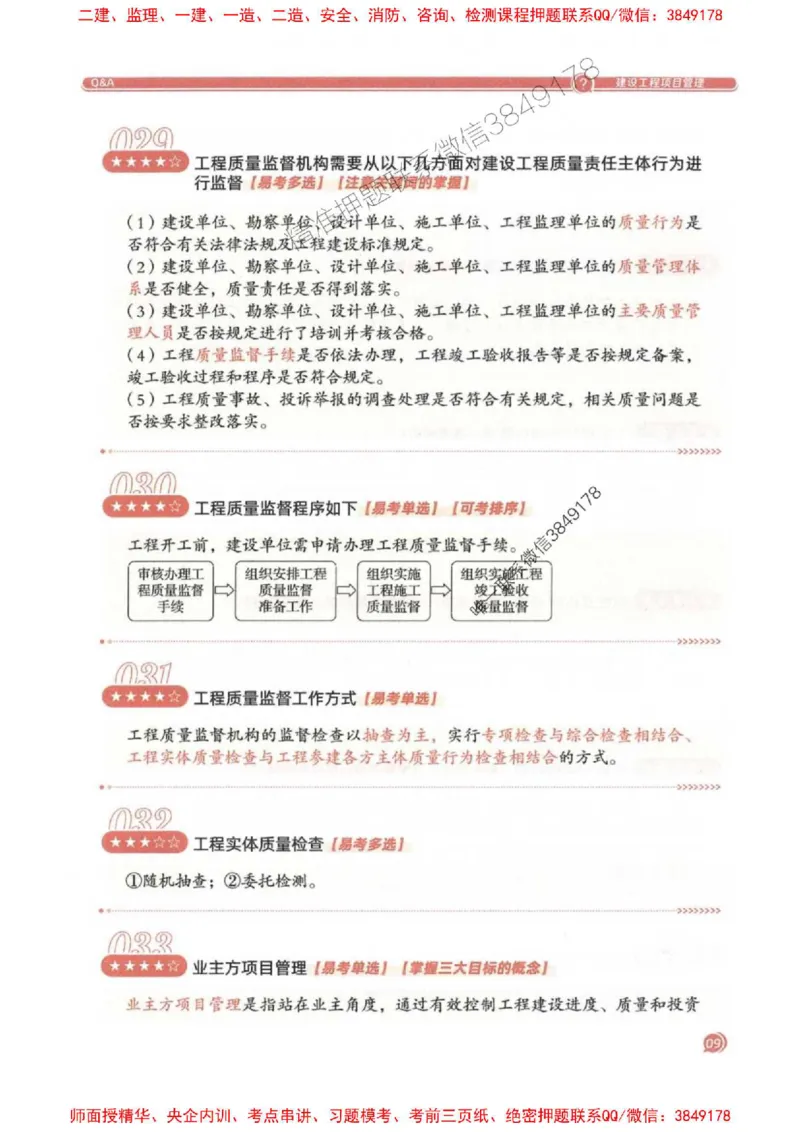 二建、监理、一建、一造、二造、安全、消防、咨询、检测课程押题联系QQ/微信：3849178
Q&A
?
建设工程项目管理
029
★★★★☆ 工程质量监督机构需要从以下几方面对建设工程质量责任主体行为进
行监督【易考多选】【注意关键词的掌握】
精准押题联系微信3849178
（1）建设单位、勘察单位、设计单位、施工单位、工程监理单位的质量行为是
否符合有关法律法规及工程建设标准规定。
（2）建设单位、勘察单位、设计单位、施工单位、工程监理单位的质量管理体
系是否健全，质量责任是否得到落实。
（3）建设单位、勘察单位、设计单位、施工单位、工程监理单位的主要质量管
理人员是否按规定进行了培训并考核合格。
（4）工程质量监督手续是否依法办理，工程竣工验收报告等是否按规定备案，
竣工验收过程和程序是否符合规定。
（5）工程质量事故、投诉举报的调查处理是否符合有关规定，相关质量问题是
否按要求整改落实。
030
★★★★☆ 工程质量监督程序如下【易考单选】【可考排序】
工程开工前，建设单位需申请办理工程质量监督手续。
审核办理工
程质量监督
手续
组织安排工程
质量监督
准备工作
组织实施
工程施工
质量监督
组织实施工程
竣工验收
质量监督
联系微信3849178
031
★★★★☆ 工程质量监督工作方式【易考单选】
工程质量监督机构的监督检查以抽查为主，实行专项检查与综合检查相结合、
工程实体质量检查与工程参建各方主体质量行为检查相结合的方式。
032
★★★☆☆ 工程实体质量检查【易考多选】
①随机抽查；②委托检测。
033
★★★★☆ 业主方项目管理【易考单选】【掌握三大目标的概念】
业主方项目管理是指站在业主角度，通过有效控制工程建设进度、质量和投资
09
师面授精华、央企内训、考点串讲、习题模考、考前三页纸、绝密押题联系QQ/微信：3849178